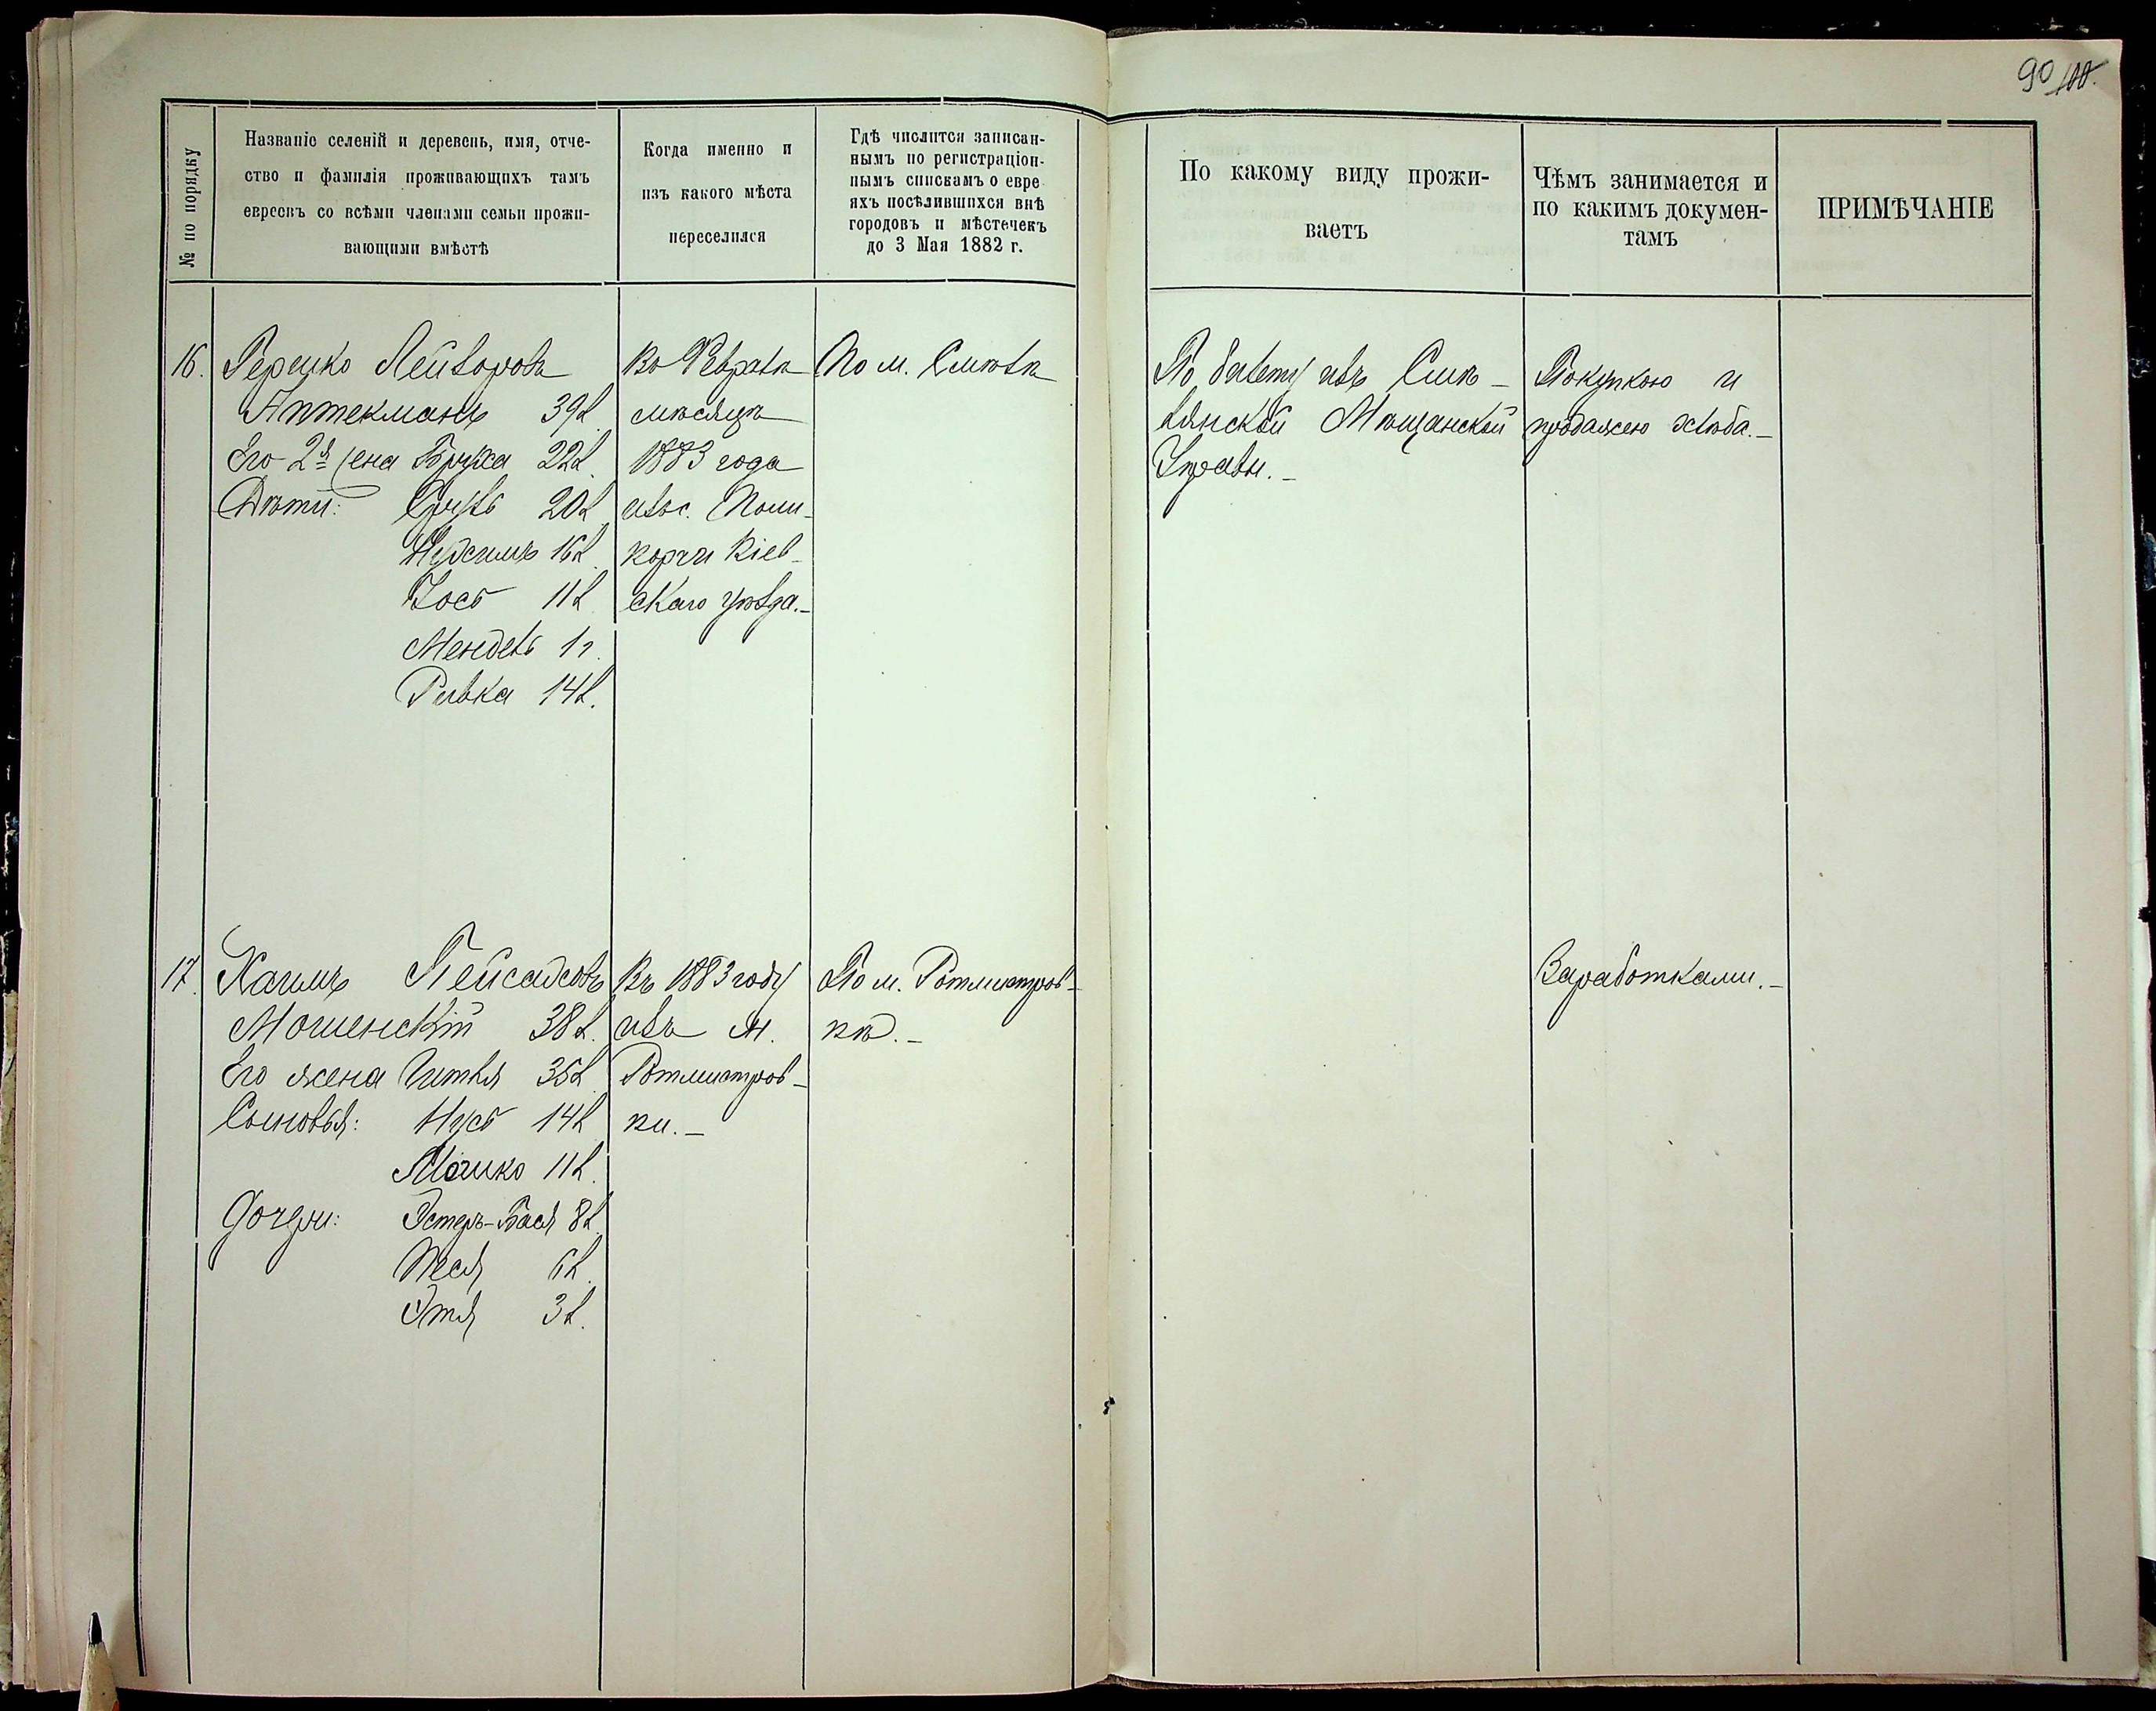 90 100.
№ по порядку
Названіе селеній и деревень, имя, отче-
ство и фамилія проживающихъ тамъ
евреевъ со всѣми членами семьи прожи-
вающими вмѣстѣ
Когда именно и
изъ какого мѣста
переселился
Гдѣ числится записан-
нымъ по регистраціон-
нымъ спискамъ о евре
яхъ посѣлившихся внѣ
городовъ и мѣстечекъ
до 3 Мая 1882 г.
По какому виду прожи-
ваетъ
Чѣмъ занимается и
по какимъ докумен-
тамъ
ПРИМѢЧАНІЕ
16. Гершко Лейзоровъ
Аптекманъ 39 л.
Его 2я жена Бруха 22 л.
Дѣти: Сруль 20 л.
16 л.
Іось 11 л.
Мендель 1 г.
Ривка 14 л.
Въ Февралѣ
мѣсяцѣ
1883 года
изъ с.
Кіев-
скаго уѣзда.-
По м. Смѣлѣ
По билету изъ Смѣ-
лянской Мѣщанской
Управы.-
Покупкою и
продажею хлѣба.-
17. Хаимъ Пейсаховъ
Мошенскій 38 л.
Его жена Гитля 35 л.
Сыновья: Нусь 14 л.
Мошко 11 л.
Дочери: Эстеръ-Бася 8 л.
Песя 6 л.
Этя 3 л.
Въ 1883 году
изъ м.
Ротмистров-
ки.-
По м. Ротмистров-
кѣ.-
Заработками.-